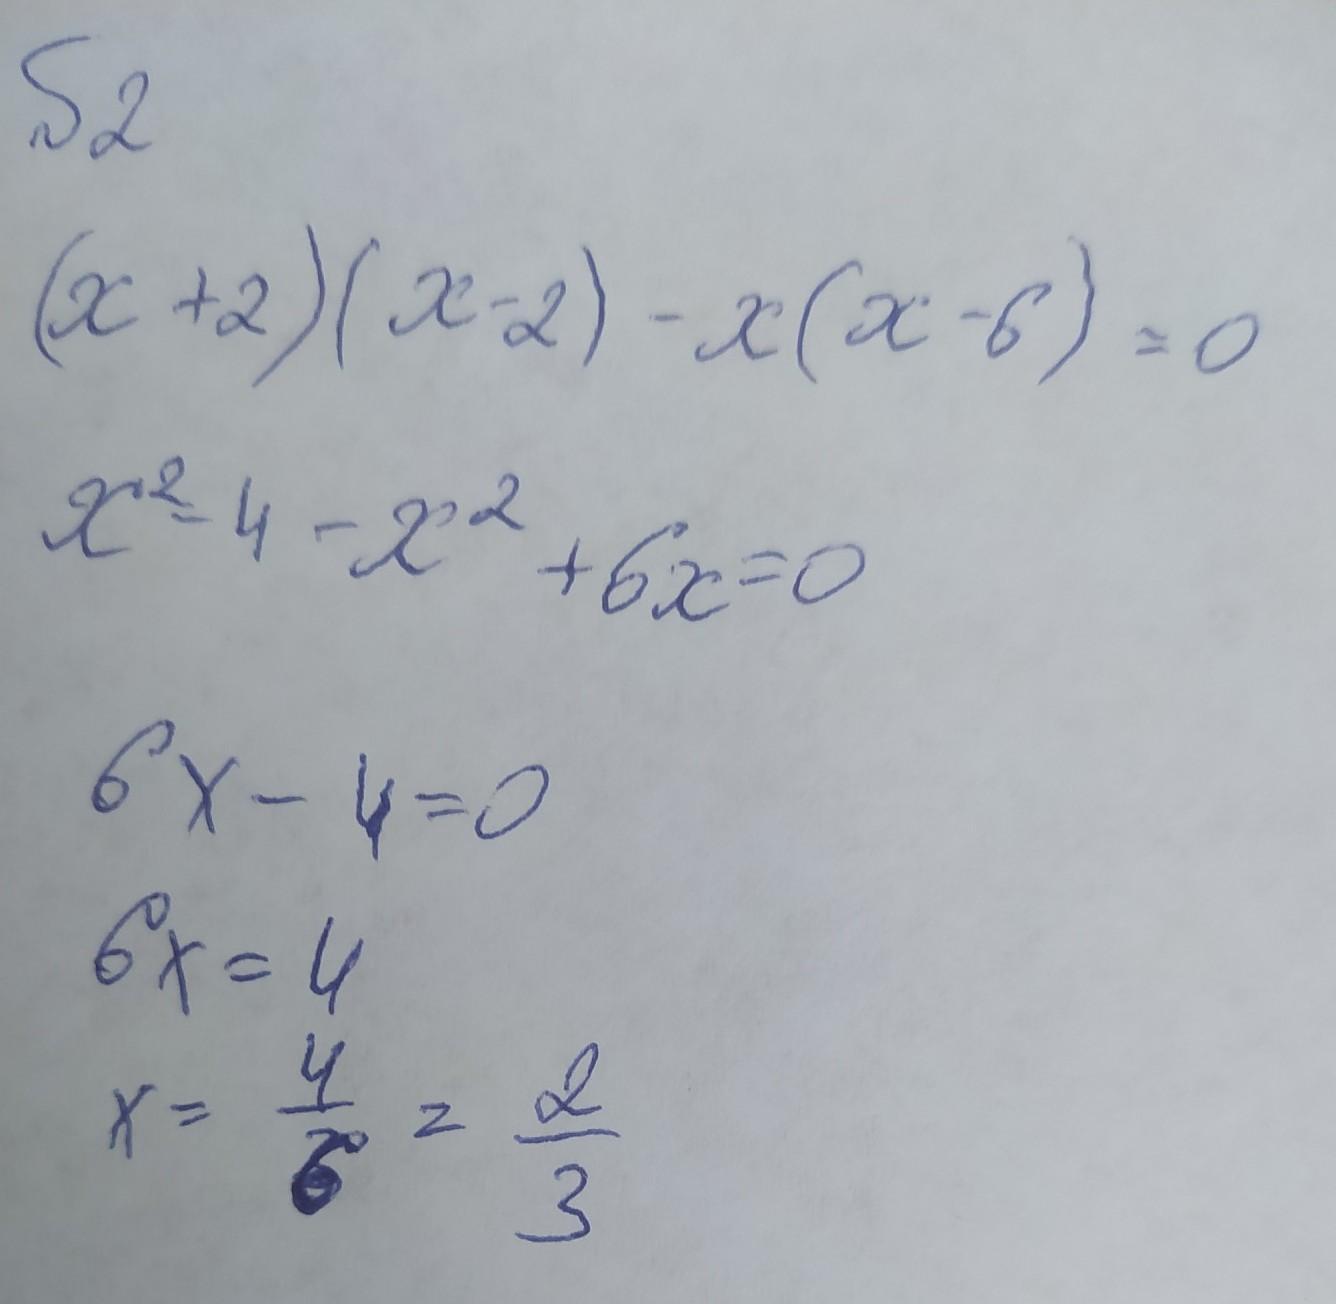 №2
(x+2)(x-2)-x(x-6)=0
x²-4-x²+6x=0
6x-4=0
6x=4
x=4/6=2/3